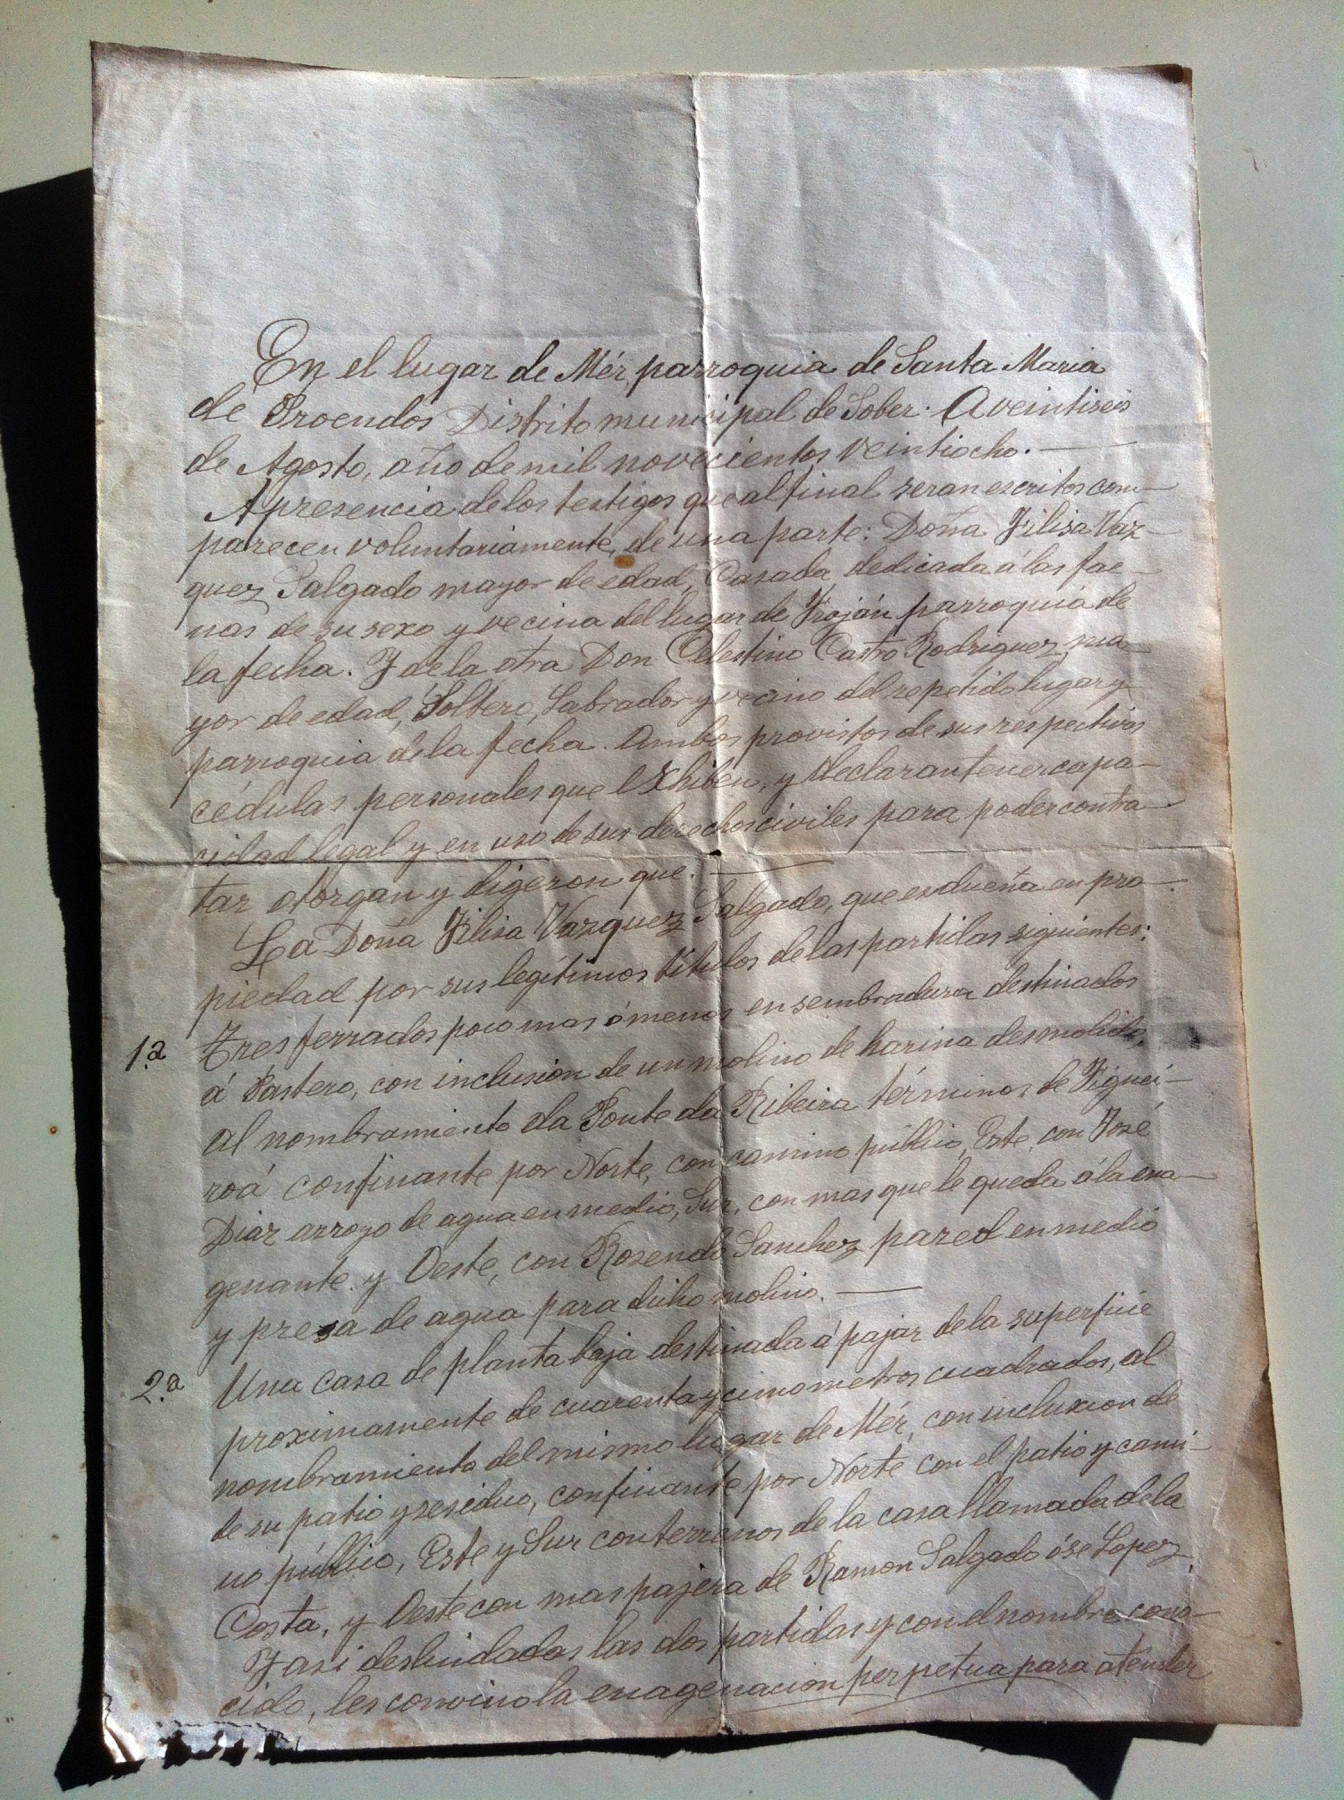 En el lugar de Mér, parroquia de Santa Maria
de Proendos Distrito municipal de Sober. A veintiseis
de Agosto, año de mil novecientos veintiocho.
A presencia de los testigos que al final seran escritos com-
parecen voluntariamente, de una parte: Doña Filisa Vaz-
quez Salgado mayor de edad, Casada, dedicada á las fae-
nas de su sexo y vecina del lugar de Froján parroquia de
la fecha. Y de la otra Don Celestino Castro Rodriguez, ma-
yor de edad, Soltero, Labrador y vecino del repetido lugar y
parroquia de la fecha. Ambos provistos de sus respectivas
cédulas personales que exhiben, y declaran tener capa-
cidad legal y en uso de sus derechos civiles para poder contra-
tar otorgan y digeron que.
La Doña Filisa Vazquez Salgado, que es dueña en pro-
piedad por sus legítimos títulos de las partidas siguientes:
1.a Tres ferrados poco mas ó menos en sembradura destinados
á Pastero, con inclusión de un molino de harina desmolido,
al nombramiento da Ponte da Ribeira términos de Figuei-
roá confinante por Norte, con camino público, Este, con José
Diaz arroyo de agua en medio, Sur, con mas que le queda á la ena-
genante. y Oeste, con Rosendo Sanchez pared en medio
y presa de agua para dicho molino.
2.a Una casa de planta baja destinada á pajar de la superficie
proximamente de cuarenta y cinco metros cuadrados, al
nombramiento del mismo lugar de Mér, con inclusion de
de su patio y residuo, confinante por Norte con el patio y cami-
no público, Este y Sur con terrenos de la casa llamada de la
Costa, y Oeste con mas pajera de Ramon Salgado ó se López,
Y asi deslindadas las dos partidas y con el nombre cono-
cido, les convino la enagenacion perpetua para atender